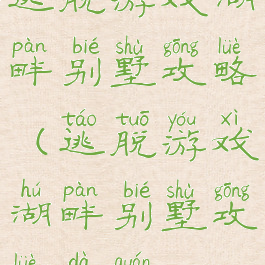 逃脱游戏湖
pàn bié shù gōng lüè
畔别墅攻略
táo tuō yóu xì
（逃脱游戏
hú pàn bié shù gōng
湖畔别墅攻
lüè dà quán